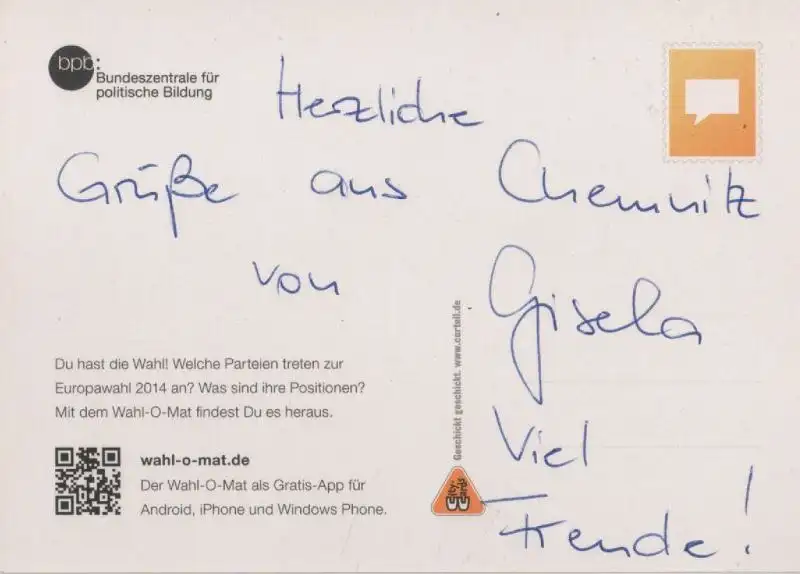 bpb:
Bundeszentrale für
politische Bildung
Herzliche
Grüße aus Chemnitz
von Gisela
Viel
Freude!
Du hast die Wahl! Welche Parteien treten zur
Europawahl 2014 an? Was sind ihre Positionen?
Mit dem Wahl-O-Mat findest Du es heraus.
wahl-o-mat.de
Der Wahl-O-Mat als Gratis-App für
Android, iPhone und Windows Phone.
Geschickt geschickt. www.cartell.de
City-
Cards